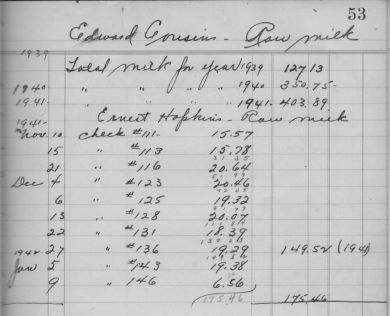 53
Edward Cousins - Raw milk
1939 Total milk for year 1939 127 13
1940 " " " " 1940 350.75
1941 " " " " 1941. 403.89
1941 Ernest Hopkins - Raw milk
Nov. 10 check #111 - 15.57
15 " #113 15.78
21 " #116 20.64
Dec 4 " #123 20.46
6 " #125 19.32
13 " #128 20.07
22 " #131 18.39
27 " #136 19.29 149.52 (1941)
1942
Jan 5 " #143 19.38
9 " 146 6.56
175.46 175.46